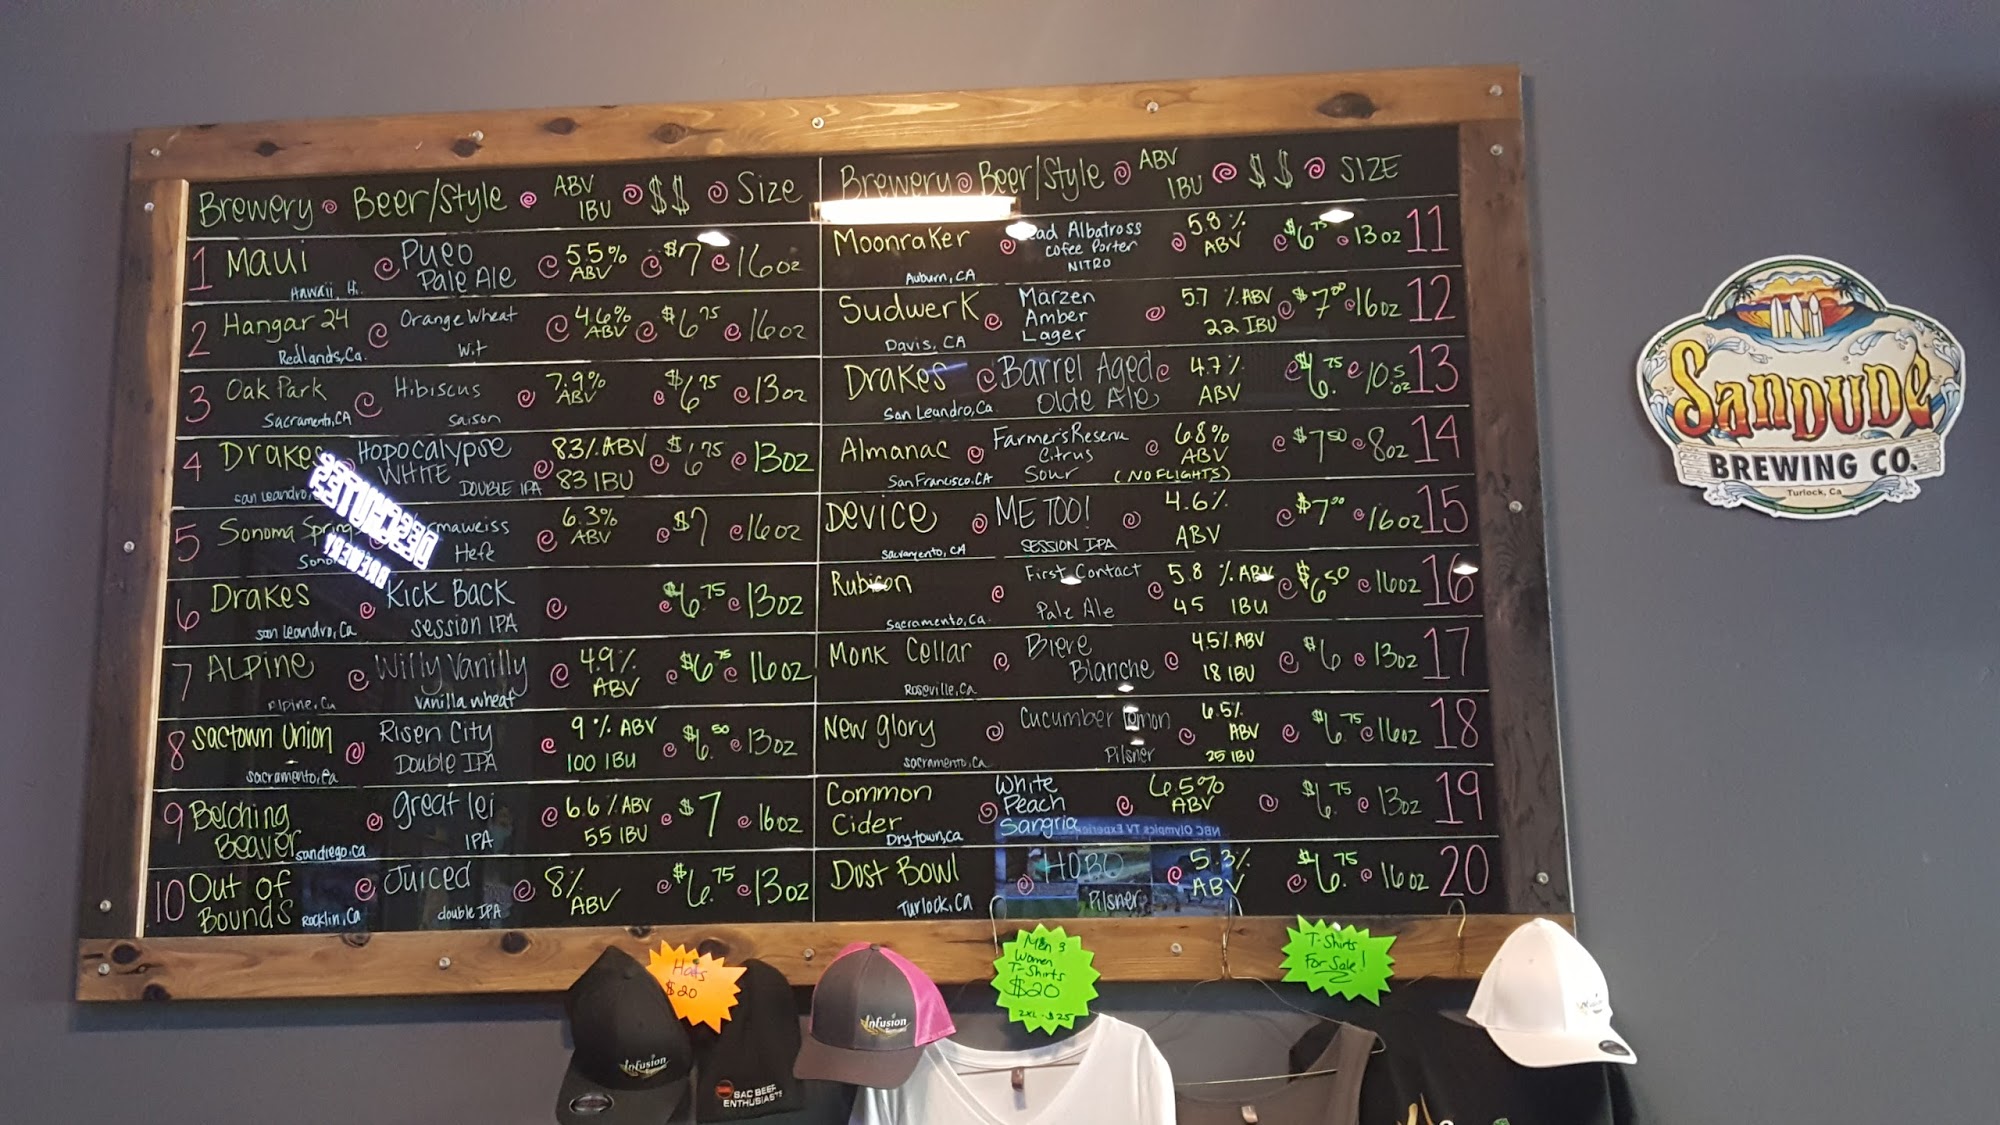 Brewery Beer/Style ABV IBU $$ Size
1 Maui Pueo Pale Ale 5.5% ABV $7 16oz
Hawaii, Hi.
2 Hangar 24 Orange Wheat Wit 4.6% ABV $6.75 16oz
Redlands, Ca.
3 Oak Park Hibiscus Saison 7.9% ABV $6.75 13oz
Sacramento, CA
4 Drakes Hopocalypse WHITE DOUBLE IPA 8.3% ABV 83 IBU $6.75 13oz
San Leandro,
5 Sonoma Springs Hefe 6.3% ABV $7 16oz
6 Drakes Kick Back Session IPA $6.75 13oz
San Leandro, Ca
7 ALPINE Willy Vanilly Vanilla Wheat 4.9% ABV $6.75 16oz
Alpine, Ca
8 Sactown Union Risen City Double IPA 9% ABV 100 IBU $6.50 13oz
Sacramento, Ca
9 Belching Beaver great lei IPA 6.6% ABV 55 IBU $7 16oz
Sandiego, Ca
10 Out of Bounds Juiced double IPA 8% ABV $6.75 13oz
Rocklin, Ca
Brewery Beer/Style ABV IBU $$ SIZE
Moonraker Albatross Cofee Porter NITRO 5.8% ABV $6.75 13oz 11
Auburn, CA
Sudwerk Märzen Amber Lager 5.7% ABV 22 IBU $7.00 16oz 12
Davis, CA
Drakes Barrel Aged Olde Ale 4.7% ABV $6.75 10.5oz 13
San Leandro, Ca
Almanac Farmer's Reserve Citrus Sour 6.8% ABV (NO FLIGHTS) $7.50 8oz 14
San Francisco, CA
DEVICE ME TOO! SESSION IPA 4.6% ABV $7.00 16oz 15
Sacramento, CA
Rubicon First Contact Pale Ale 5.8% ABV 45 IBU $6.50 16oz 16
Sacramento, Ca
Monk Cellar Biere Blanche 4.5% ABV 18 IBU $6 13oz 17
Roseville, Ca
New glory Cucumber Lemon Pilsner 6.5% ABV 25 IBU $6.75 16oz 18
Sacramento, Ca
Common Cider White Peach Sangria 6.5% ABV $6.75 13oz 19
Drytown, ca
Dust Bowl HOBO Pilsner 5.3% ABV $6.75 16oz 20
Turlock, Ca
DESCHUTES
BREWERY
NBC Olympics TV
SANDUDE
BREWING CO.
Turlock, Ca
Hats
$20
Men &
Women
T-Shirts
$20
2XL - $25
T-Shirts
For Sale!
Infusion
SAC BEER
ENTHUSIASTS
Infusion